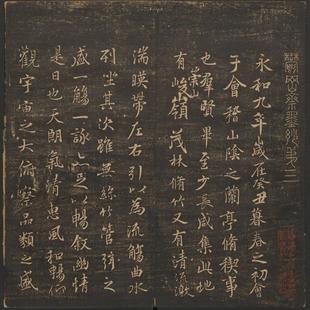 鬱岡齋墨妙第二
永和九年歲在癸丑暮春之初會
于會稽山陰之蘭亭脩稧事
也群賢畢至少長咸集此地
有崇山峻嶺茂林脩竹又有清流激
湍暎帶左右引以為流觴曲水
列坐其次雖無絲竹管弦之
盛一觴一詠亦足以暢叙幽情
是日也天朗氣清惠風和暢仰
觀宇宙之大俯察品類之盛